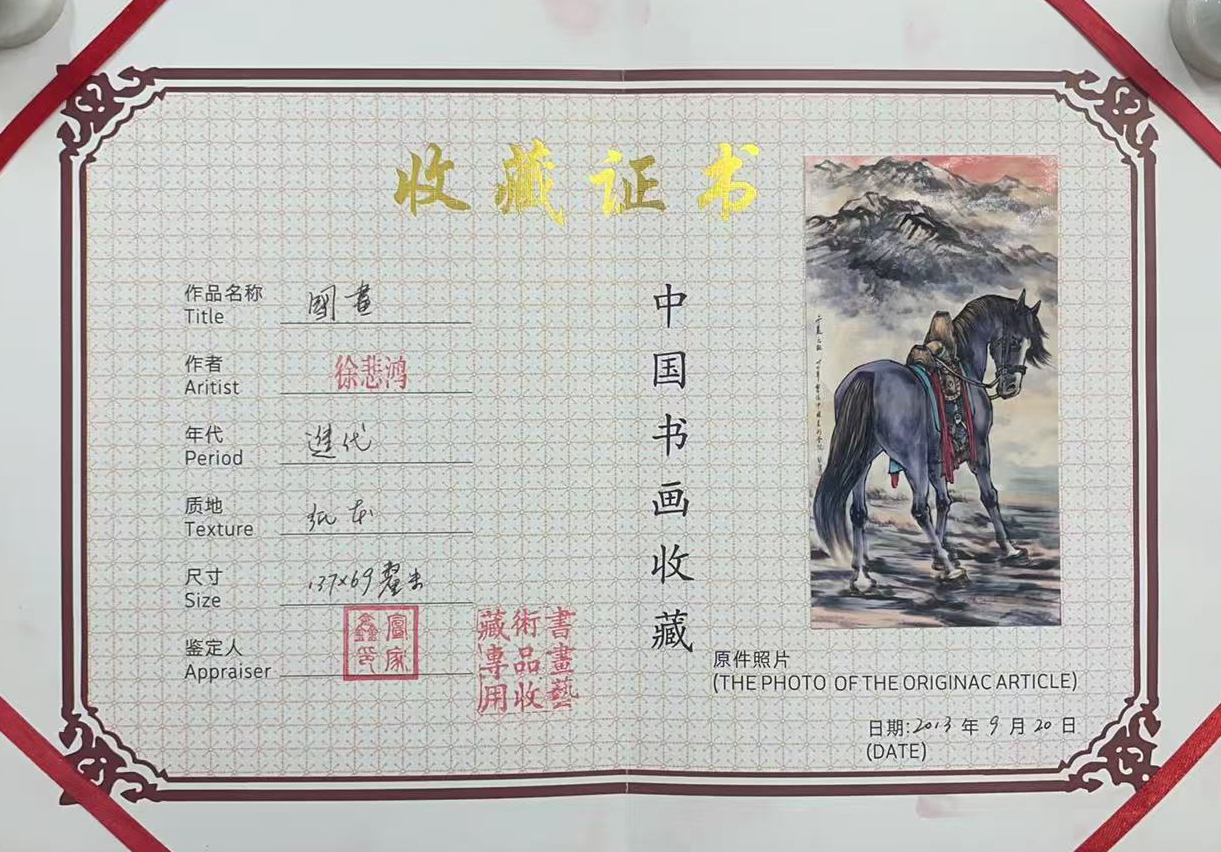 收藏证书
作品名称 國畫
Title
作者 徐悲鸿
Aritist
年代 進代
Period
质地 纸本
Texture
尺寸 137×69釐米
Size
鉴定人
Appraiser
書畫藝
術品收
藏專用
中国书画收藏
原件照片
(THE PHOTO OF THE ORIGINAC ARTICLE)
日期:2013年9月20日
(DATE)